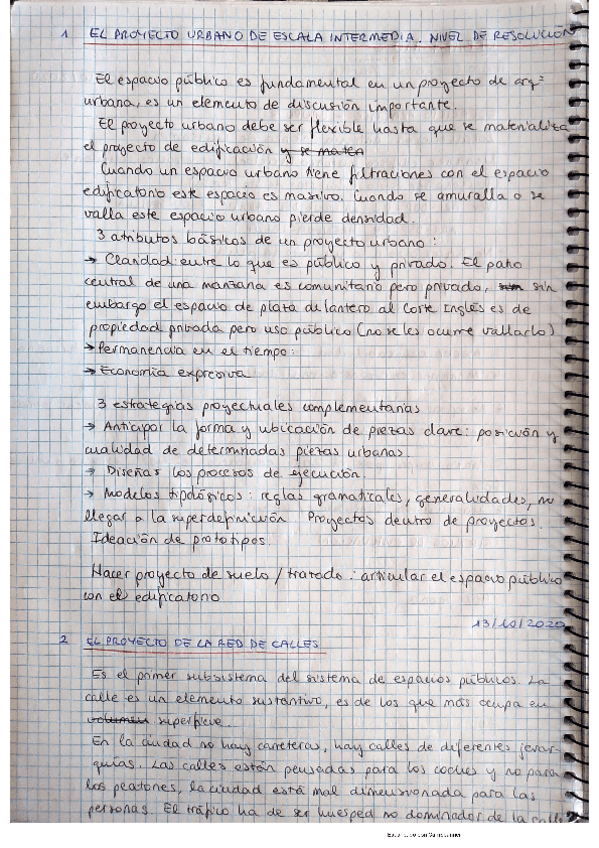 1 EL PROYECTO URBANO DE ESCALA INTERMEDIA. NIVEL DE RESOLUCIÓN
El espacio público es fundamental en un proyecto de arqª
urbana, es un elemento de discusión importante.
El proyecto urbano debe ser flexible hasta que se materializa
el proyecto de edificación y se maten
Cuando un espacio urbano tiene filtraciones con el espacio
edificatorio este espacio es masivo. Cuando se amuralla o se
valla este espacio urbano pierde densidad.
3 atributos básicos de un proyecto urbano:
→ Claridad entre lo que es público y privado. El patio
central de una manzana es comunitario pero privado, sin
embargo el espacio de plata delantero al Corte Inglés es de
propiedad privada pero uso público (no se les ocurre vallarlo)
→ Permanencia en el tiempo:
→ Economía expresiva
3 estrategias proyectuales complementarias
→ Anticipar la forma y ubicación de piezas clave: posición y
cualidad de determinadas piezas urbanas.
→ Diseñas los procesos de ejecución.
→ Modelos tipológicos: reglas gramaticales, generalidades, no
llegar a la superdefinición Proyectos dentro de proyectos.
Ideación de prototipos.
Hacer proyecto de suelo / trazado: articular el espacio público
con el edificatorio
13/10/2020
2 EL PROYECTO DE LA RED DE CALLES
Es el primer subsistema del sistema de espacios públicos. La
calle es un elemento sustantivo, es de los que más ocupa en
volumen superficie.
En la ciudad no hay carreteras, hay calles de diferentes jerar-
quías. Las calles están pensadas para los coches y no para
los peatones, la ciudad está mal dimensionada para las
personas. El tráfico ha de ser huesped no dominador de la calle